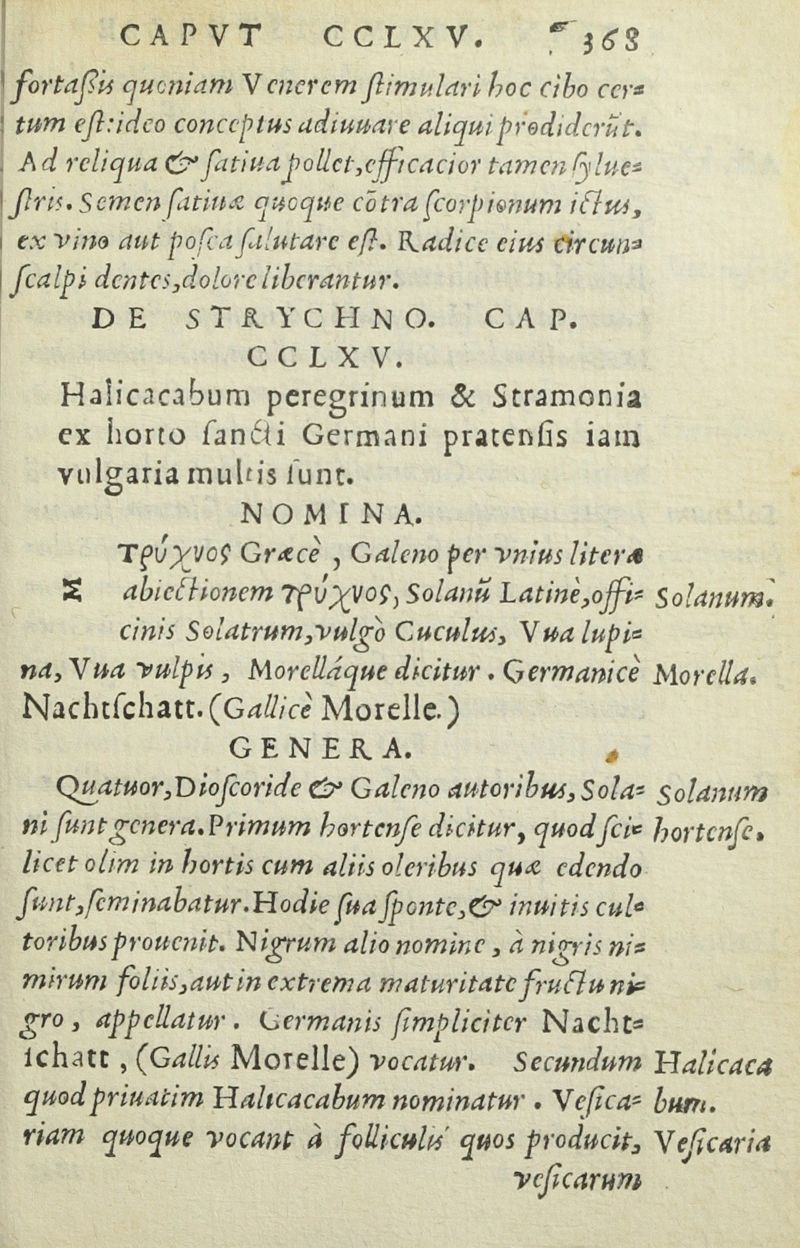 CAPVT CCLXV. 368
fortaßis quoniam Venerem ſtimulari hoc cibo cer=
tum eſt:ideo conceptus adiuuare aliqui prodiderũt.
Ad reliqua & ſatiua pollet,efficacior tamen ſylue=
ſtris. Semen ſatiuæ quoque cõtra ſcorpionum ictus,
ex vino aut poſca ſalutare eſt. Radice eius circun=
ſcalpi dentes,dolore liberantur.
DE STRYCHNO. CAP.
CCLXV.
Halicacabum peregrinum & Stramonia
ex horto ſancti Germani pratenſis iam
vulgaria multis ſunt.
NOMINA.
Τρύχνος Græcè , Galeno per vnius literæ
Σ abiectionem τρύχνος, Solanũ Latinè,offi= Solanum.
cinis Solatrum,vulgò Cuculus, Vua lupi=
na, Vua vulpis , Morelláque dicitur . Germanicè Morella.
Nachtſchatt. (Gallicè Morelle.)
GENERA.
Quatuor,Dioſcoride & Galeno autoribus, Sola= Solanum
ni ſunt genera.Primum hortenſe dicitur, quod ſci= hortenſe.
licet olim in hortis cum aliis oleribus quæ edendo
ſunt,ſeminabatur.Hodie ſua ſponte,& inuitis cul=
toribus prouenit. Nigrum alio nomine , à nigris ni=
mirum foliis,aut in extrema maturitate fructu ni=
gro , appellatur . Germanis ſimpliciter Nacht=
ſchatt , (Gallis Morelle) vocatur. Secundum Halicaca
quod priuatim Halicacabum nominatur . Veſica= bum.
riam quoque vocant à folliculis quos producit, Veſicaria
veſicarum